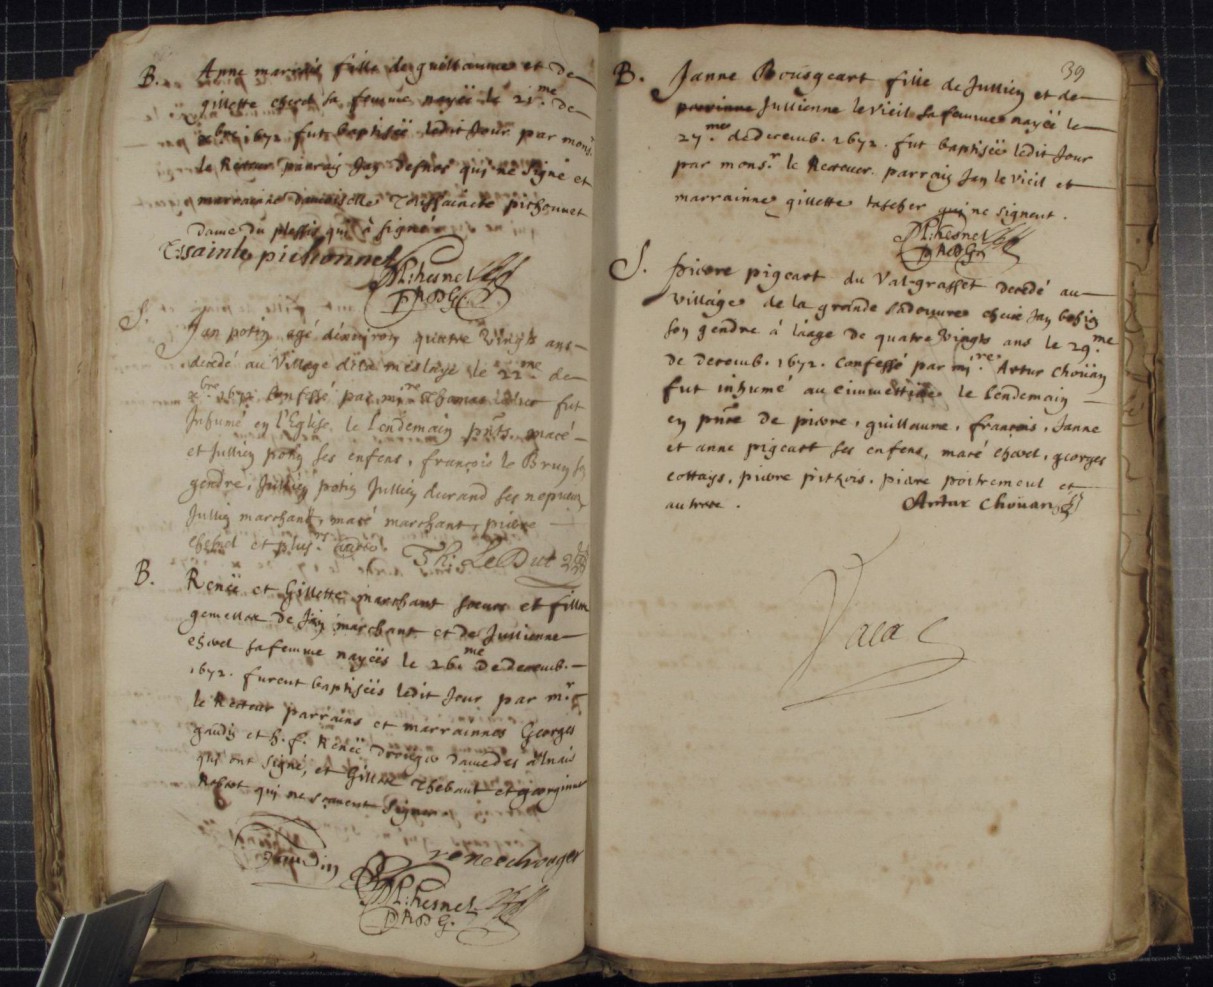 B. Anne fille de guillaume et de
gillette chevet sa femme nayéë le 21.me de
xbre 1672 fut baptiséë ledit Jour par monsr
le Recteur parrain Jan desnos qui ne signe et
marrainne damoiselle Toussaincte pichonnet
dame du plessis qui à signé
Tssainte pichonnet
M: hesnel
PRDG.
S. Jan potin agé denviron quattre vingts ans
decedé au village le 22.me de
xbre 1672 Confessé par mire Thomas fut
Inhumé en l'Eglise le lendemain pnts. macé
et Jullien potin ses enfens, françois le Brun sō
gendre, Jullien potin Jullien durand ses nepveux
Jullien marchant, macé marchant, pierre
chevel et plusrs
Th: Le Duc
B. Renéë et Gillette marchant sœurs et filles
gemelles de Jan marchant et de Jullienne
chevel sa femme nayéës le 26.me de decemb.
1672. furent baptiséës ledit Jour par mr.
le Recteur parrains et marrainnes Georges
gaudin et h. f. Renéë drouges dame des
qui ont signé, et Gillette Thebaut et georginne
qui ne scavent signer
Gaudin
renee drouges
M: hesnel
PRDG.
39
B. Janne Bousgeart fille de Jullien et de
Jullienne le vieil sa femme nayéë le
27.me de decemb. 1672. fut baptiséë ledit Jour
par monsr. le Recteur. parrain Jan le vieil et
marrainne gillette qui ne signent.
M: hesnel
PRDG.
S. pierre pigeart du Val-grasset decedé au
village de la grande chéix Jan
son gendre à laage de quatre vingts ans le 29.me
de decemb. 1672. Confessé par mire. Artur Choüan
fut inhumé au cimmettiere le lendemain
en pnce de pierre, guillaume, françois, Janne
et anne pigeart ses enfens, macé chevel, georges
cottays, pierre pitrois, pierre poitremeul et
autres.
Artur Choüan
Vacat